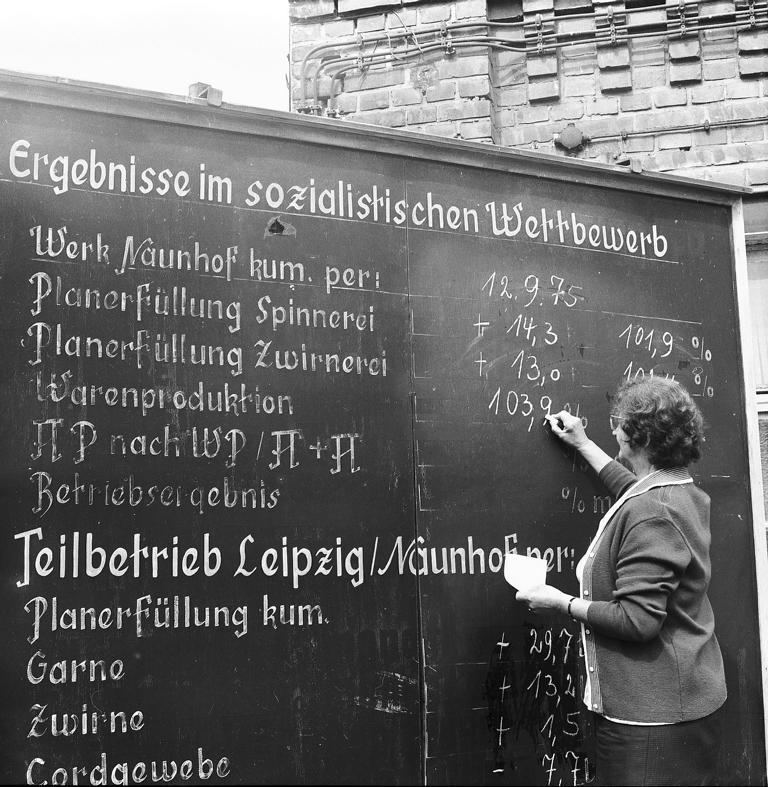 Ergebnisse im sozialistischen Wettbewerb
Werk Naunhof kum. per: 12.9.75
Planerfüllung Spinnerei + 14,3 101,9 %
Planerfüllung Zwirnerei + 13,0 %
Warenproduktion 103,9 %
nach WP/
Betriebsergebnis % m
Teilbetrieb Leipzig/Naunhof per:
Planerfüllung kum.
Garne + 29,7
Zwirne + 13,2
Cordgewebe + 1,5
- 7,7